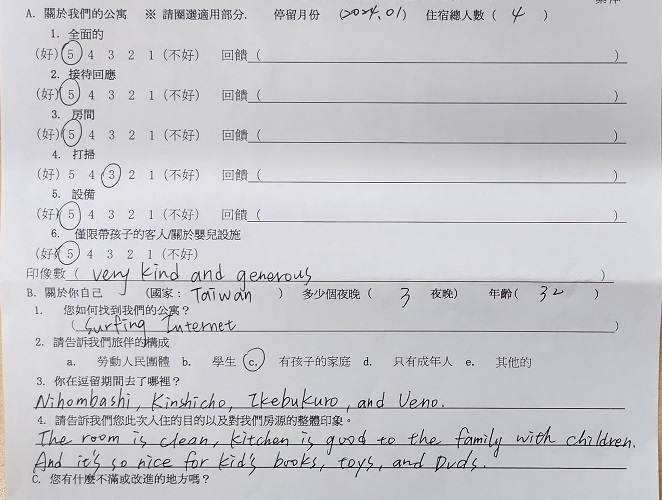 A. 關於我們的公寓 ※ 請圈選適用部分. 停留月份 (2024.01) 住宿總人數 ( 4 )
1. 全面的
(好) 5 4 3 2 1 (不好) 回饋 ( )
2. 接待回應
(好) 5 4 3 2 1 (不好) 回饋 ( )
3. 房間
(好) 5 4 3 2 1 (不好) 回饋 ( )
4. 打掃
(好) 5 4 3 2 1 (不好) 回饋 ( )
5. 設備
(好) 5 4 3 2 1 (不好) 回饋 ( )
6. 僅限帶孩子的客人/關於嬰兒設施
(好) 5 4 3 2 1 (不好)
印像數 ( very kind and generous )
B. 關於你自己 (國家: Taiwan ) 多少個夜晚 ( 3 夜晚) 年齡( )
1. 您如何找到我們的公寓?
( Surfing Internet )
2. 請告訴我們旅伴的構成
a. 勞動人民團體 b. 學生 c. 有孩子的家庭 d. 只有成年人 e. 其他的
3. 你在逗留期間去了哪裡?
Nihombashi, Kinshicho, Ikebukuro, and Ueno.
4. 請告訴我們您此次入住的目的以及對我們房源的整體印象。
The room is clean, kitchen is good to the family with children.
And it's so nice for kid's books, toys, and Dvds.
C. 您有什麼不滿或改進的地方嗎?